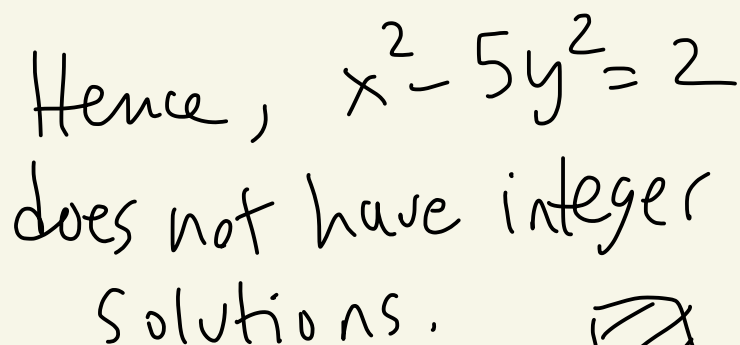 Hence, x² - 5y² = 2
does not have integer
solutions.